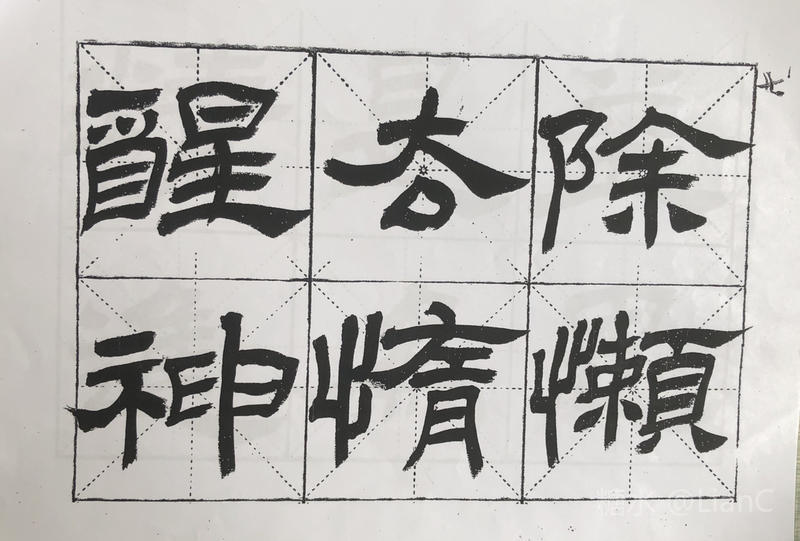 除懶
去惰
醒神
糖水 @LianC